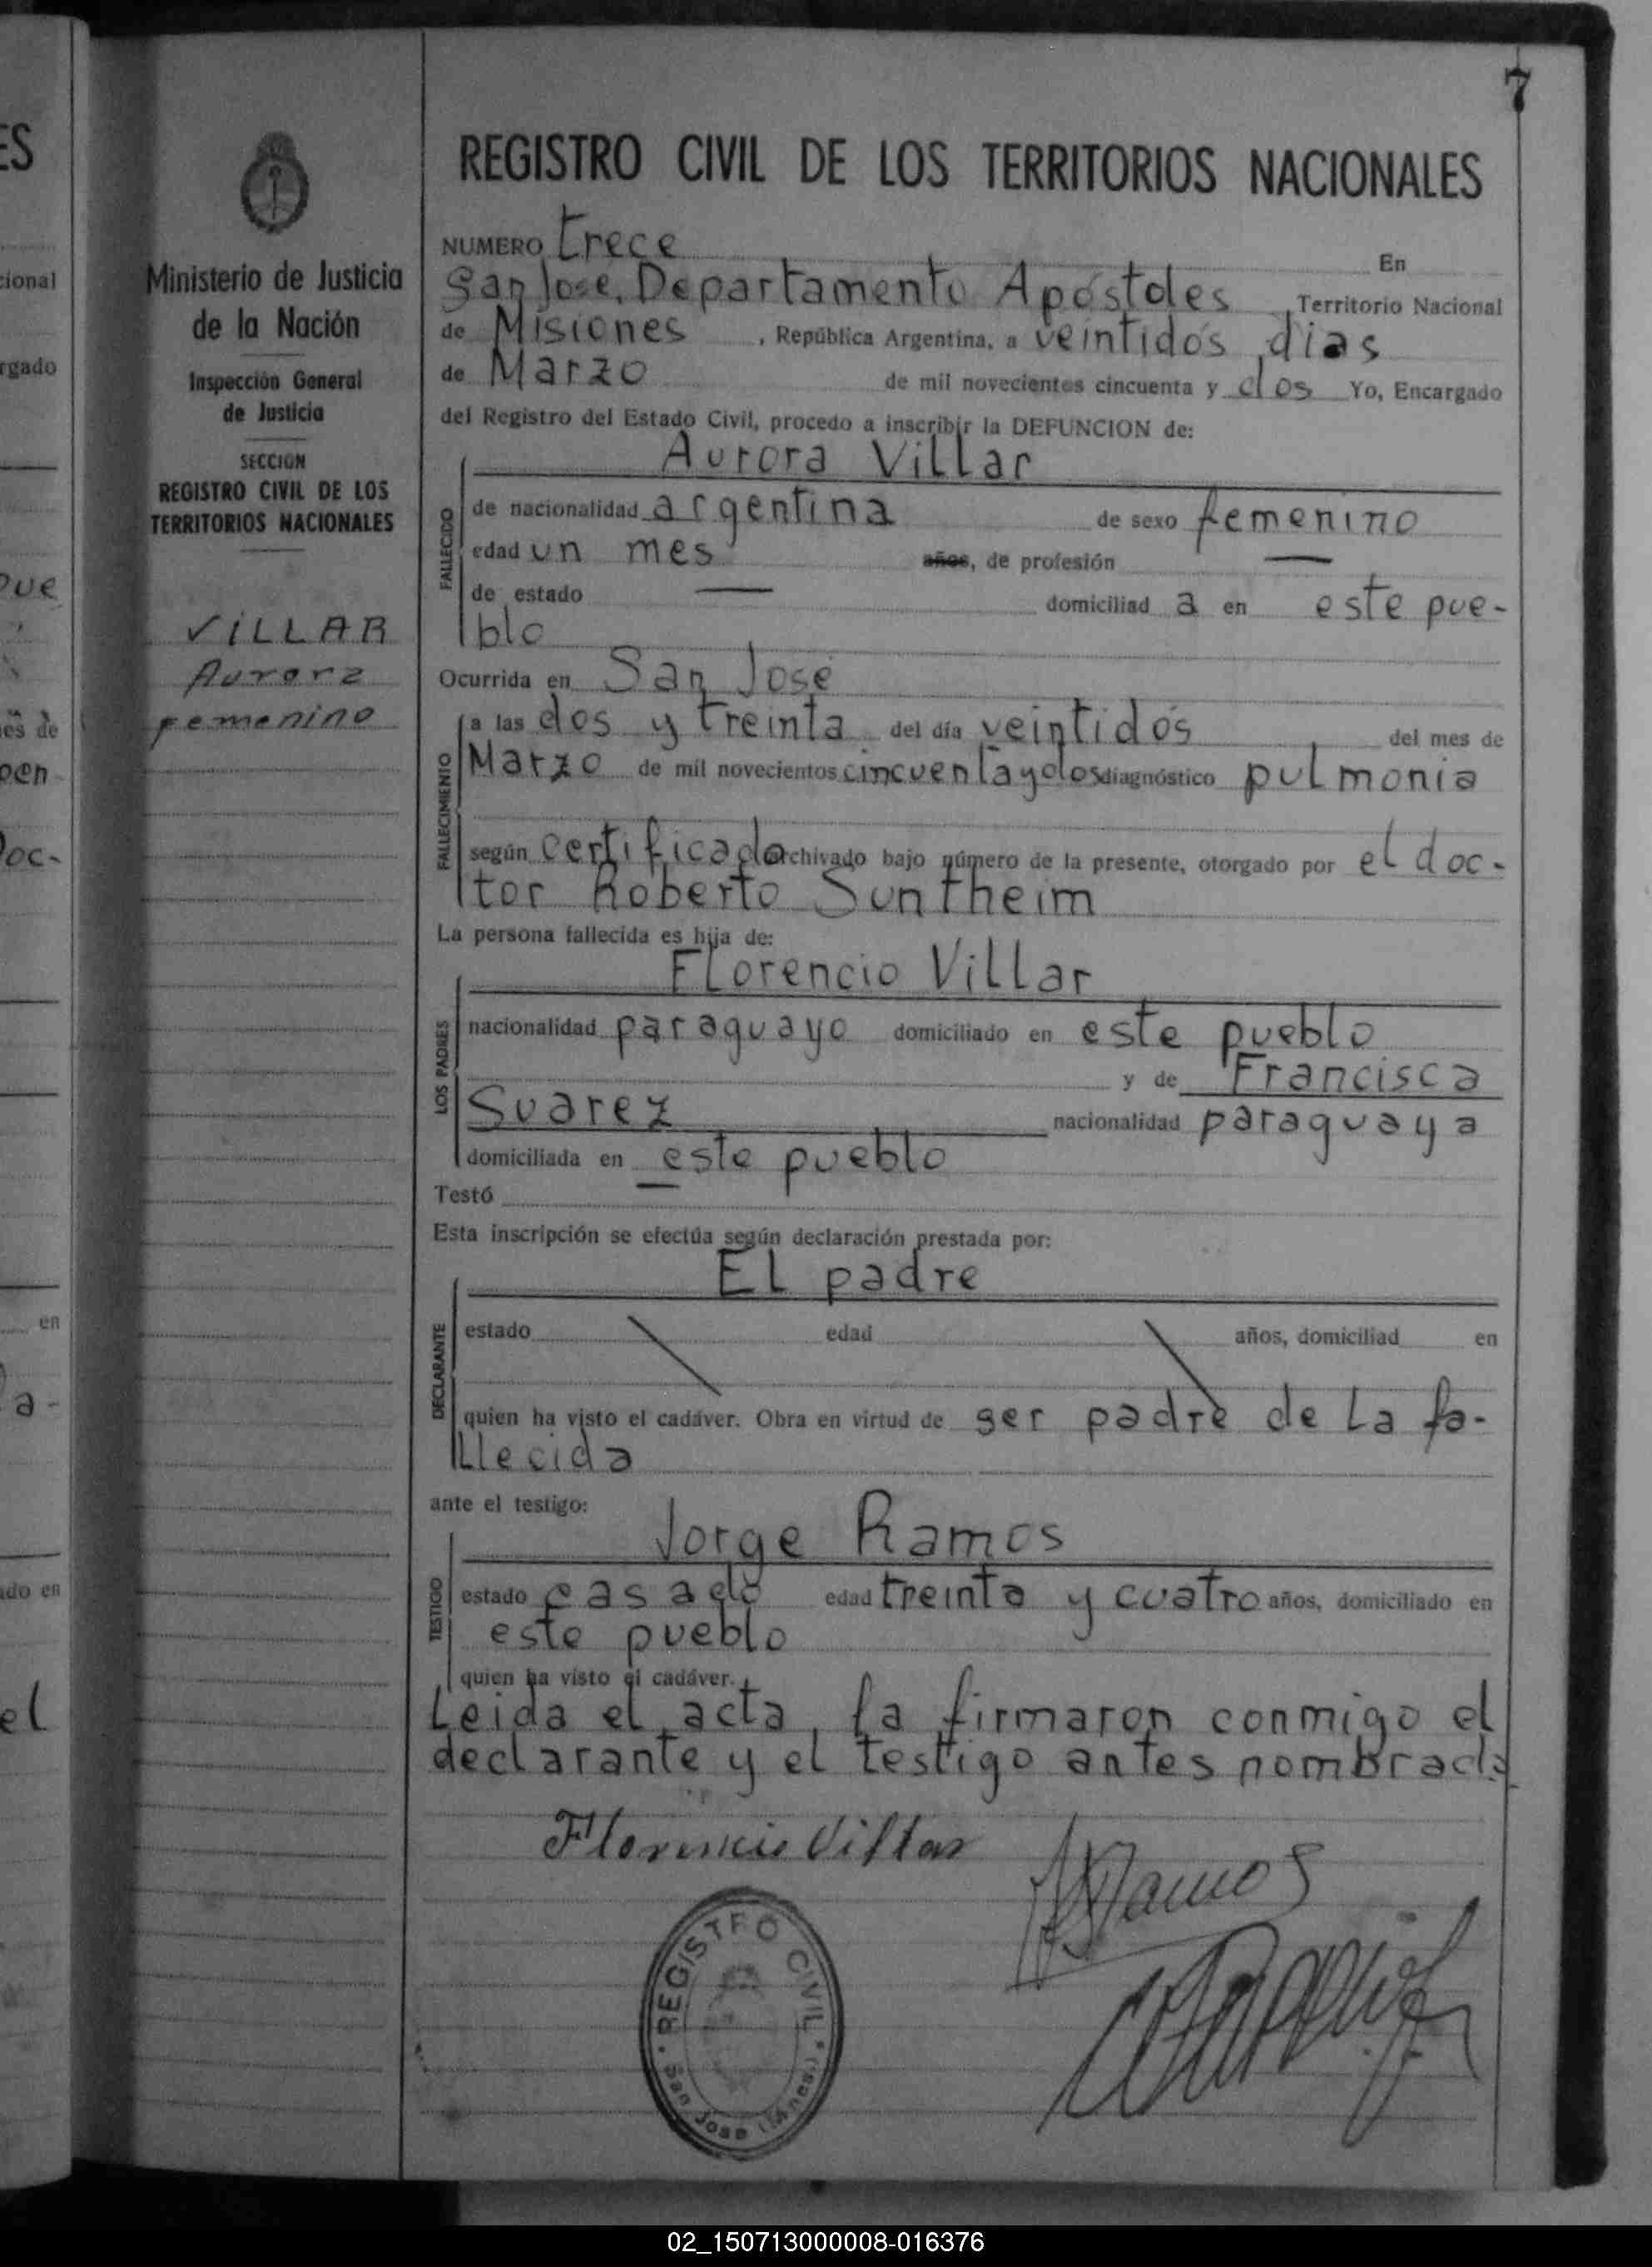 7
REGISTRO CIVIL DE LOS TERRITORIOS NACIONALES
Ministerio de Justicia
de la Nación
Inspección General
de Justicia
SECCION
REGISTRO CIVIL DE LOS
TERRITORIOS NACIONALES
VILLAR
Aurora
femenino
NUMERO trece En
San Jose, Departamento Apóstoles, Territorio Nacional
de Misiones, República Argentina, a veintidós dias
de Marzo de mil novecientos cincuenta y dos Yo, Encargado
del Registro del Estado Civil, procedo a inscribir la DEFUNCION de:
Aurora Villar
FALLECIDO
de nacionalidad argentina de sexo femenino
edad un mes años, de profesión —
de estado — domiciliad a en este pue-
blo
Ocurrida en San José
FALLECIMIENTO
a las dos y treinta del día veintidós del mes de
Marzo de mil novecientos cincuenta y dos diagnóstico pulmonia
según certificado archivado bajo número de la presente, otorgado por el doc-
tor Roberto Suntheim
La persona fallecida es hija de:
Florencio Villar
LOS PADRES
nacionalidad paraguayo domiciliado en este pueblo
y de Francisca
Suarez nacionalidad paraguaya
domiciliada en este pueblo
Testó —
Esta inscripción se efectúa según declaración prestada por:
El padre
DECLARANTE
estado edad años, domiciliad en
quien ha visto el cadáver. Obra en virtud de ser padre de la fa-
llecida
ante el testigo:
Jorge Ramos
TESTIGO
estado casado edad treinta y cuatro años, domiciliado en
este pueblo
quien ha visto el cadáver.
Leida el acta, la firmaron conmigo el
declarante y el testigo antes nombrado
Florencio Villar
Ramos
REGISTRO CIVIL
San Jose (Mnes.)
ES
cional
rgado
pue
es de
pen
Doc-
en
a-
ado en
el
02_150713000008-016376